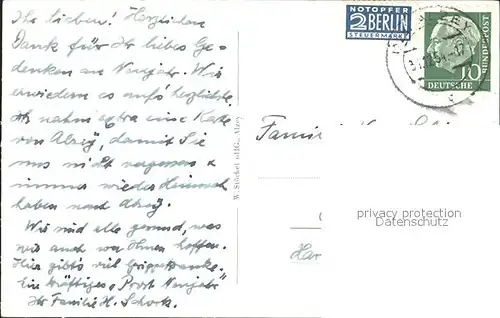 Ihr lieben! Herzlichen
Dank für Ihr liebes Ge-
denken an Neujahr. Wir
erwiedern es aufs herzlichste.
Ich nahm extra eine Karte
von Alzey, damit Sie
uns nicht vergessen &
immer wieder Heimweh
haben nach Alzey.
Wir sind alle gesund, was
wir auch von Ihnen hoffen.
Hier gibt's viel Grippekranke.
Ein kräftiges "Prost Neujahr"
Ihr Familie H. Schork.
W. Stöckel Alzey
NOTOPFER
2 BERLIN
STEUERMARKE
10
DEUTSCHE
BUNDESPOST
Fami
Har
privacy protection
Datenschutz